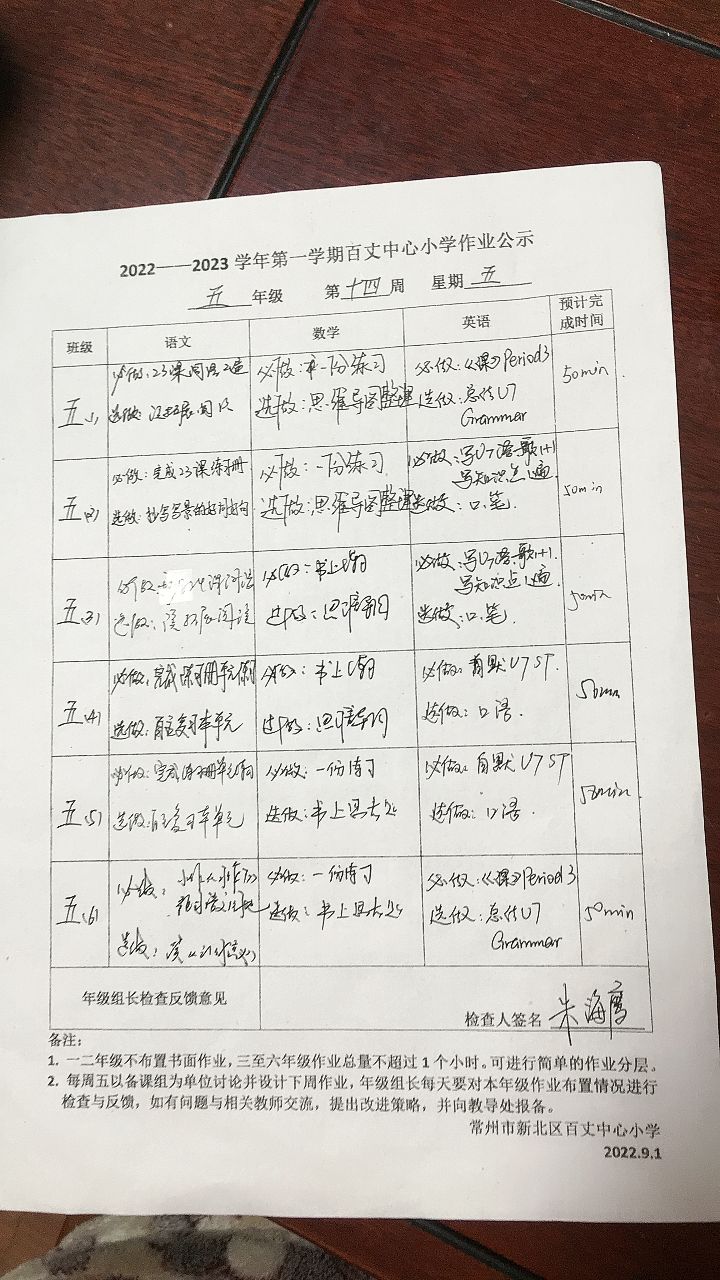 2022——2023 学年第一学期百丈中心小学作业公示
五 年级 第 十四 周 星期 五
班级 语文 数学 英语 预计完成时间
五(1)
必做:23课
选做:
必做:一份练习
选做:思维导图整理
必做:《课》Period3
选做:总结U7
Grammar
50min
五(2)
必做:完成23课练习册
选做:抄写写景的好词好句
必做:一份练习
选做:思维导图整理
必做:写U7语、歌1+1
写知识点1遍
选做:口、笔.
50min
五(3)
必做
选做:
必做:书上
选做:思维导图
必做:写U7语、歌1+1.
写知识点1遍.
选做:口、笔.
50min
五(4)
必做:完成练习册单元
选做:自主复习本单元
必做:书上
选做:思维导图
必做:自默U7 ST.
选做:口语.
50min
五(5)
必做:完成练习册单元
选做:自主复习本单元
必做:一份练习
选做:书上思考题
必做:自默U7 ST
选做:口语.
50min
五(6)
必做:
选做:
必做:一份练习
选做:书上思考题
必做:《课》Period 3
选做:总结U7
Grammar
50min
年级组长检查反馈意见
检查人签名 朱海鹰
备注:
1. 一二年级不布置书面作业,三至六年级作业总量不超过 1 个小时。可进行简单的作业分层。
2. 每周五以备课组为单位讨论并设计下周作业,年级组长每天要对本年级作业布置情况进行
检查与反馈,如有问题与相关教师交流,提出改进策略,并向教导处报备。
常州市新北区百丈中心小学
2022.9.1